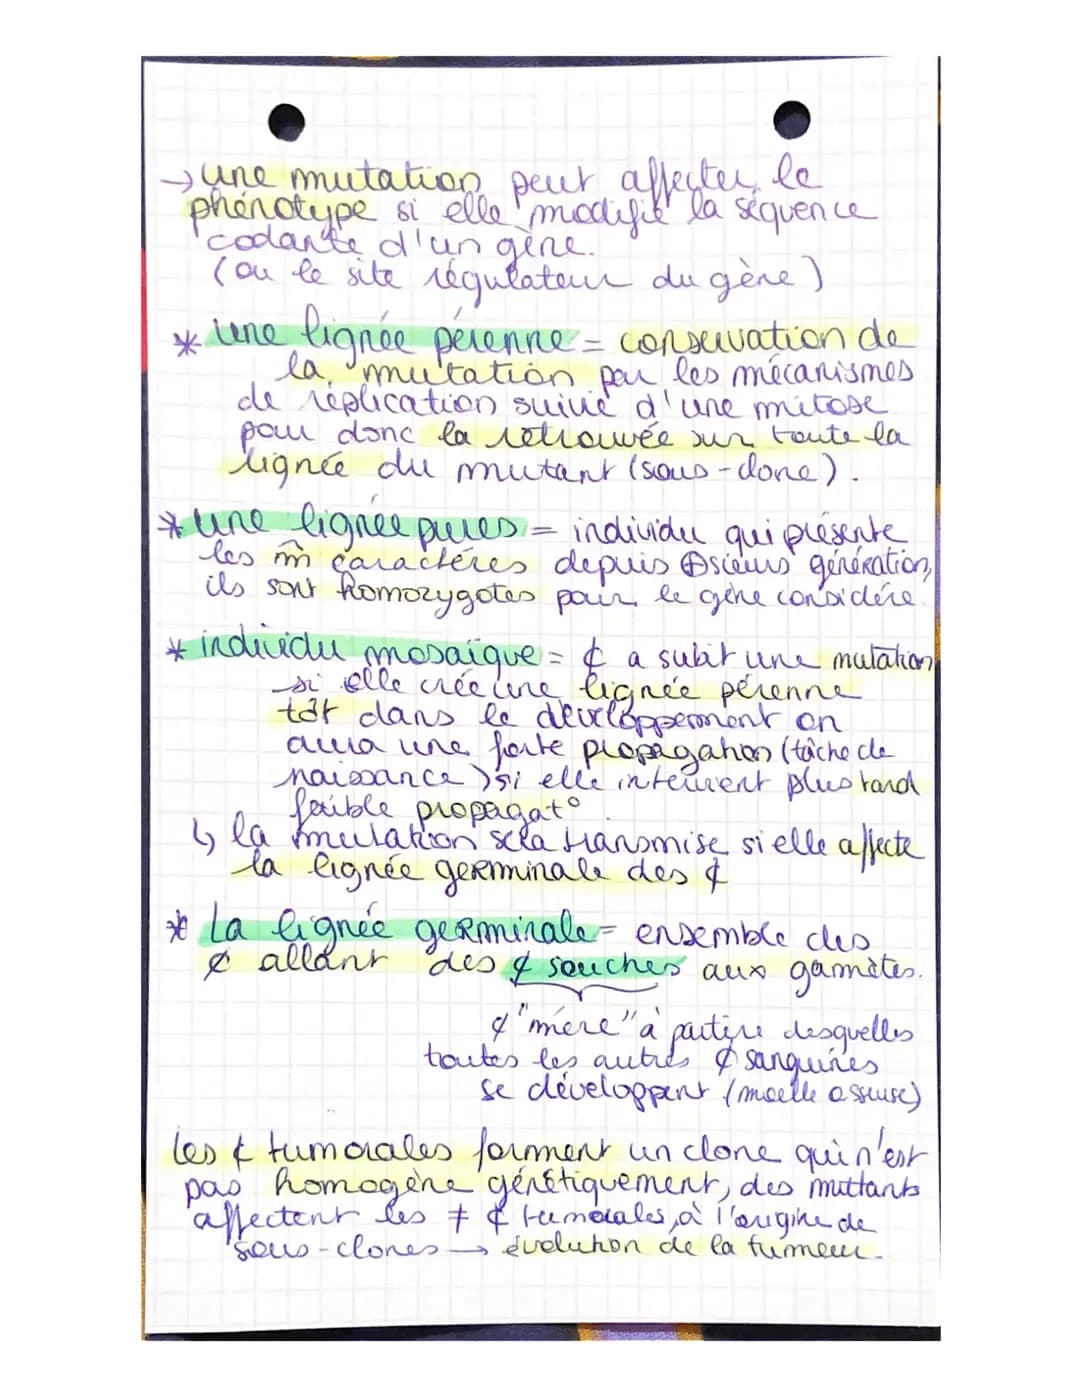 → une mutation peut affecter le
phénotype si elle modifie la séquence
codante d'un gène.
(ou le site régulateur du gène)
* une lignée pérenne = conservation de
la mutation par les mécanismes
de réplication suivie d'une mitose
pour donc la retrouvée sur toute la
lignée du mutant (sous-clone).
* une lignée pures = individu qui présente
les m̂ caractères depuis ⊕sieurs génération,
ils sont homozygotes pour le gène considéré.
* individu mosaïque = ¢ a subit une mutation
si elle crée une lignée pérenne
tôt dans le développement on
aura une forte propagation (tâche de
naissance) si elle intervient plus tard
faible propagat°
↳ la mutation sera transmise si elle affecte
la lignée germinale des ¢
* La lignée germinale = ensemble des
¢ allant des ¢ souches aux gamètes.
¢ "mère" à partire desquelles
toutes les autres ¢ sanguines
se développent (moelle osseuse)
les ¢ tumorales forment un clone qui n'est
pas homogène génétiquement, des muttants
affectent les ≠ ¢ tumorales, à l'origine de
sous-clones → évolution de la tumeur.